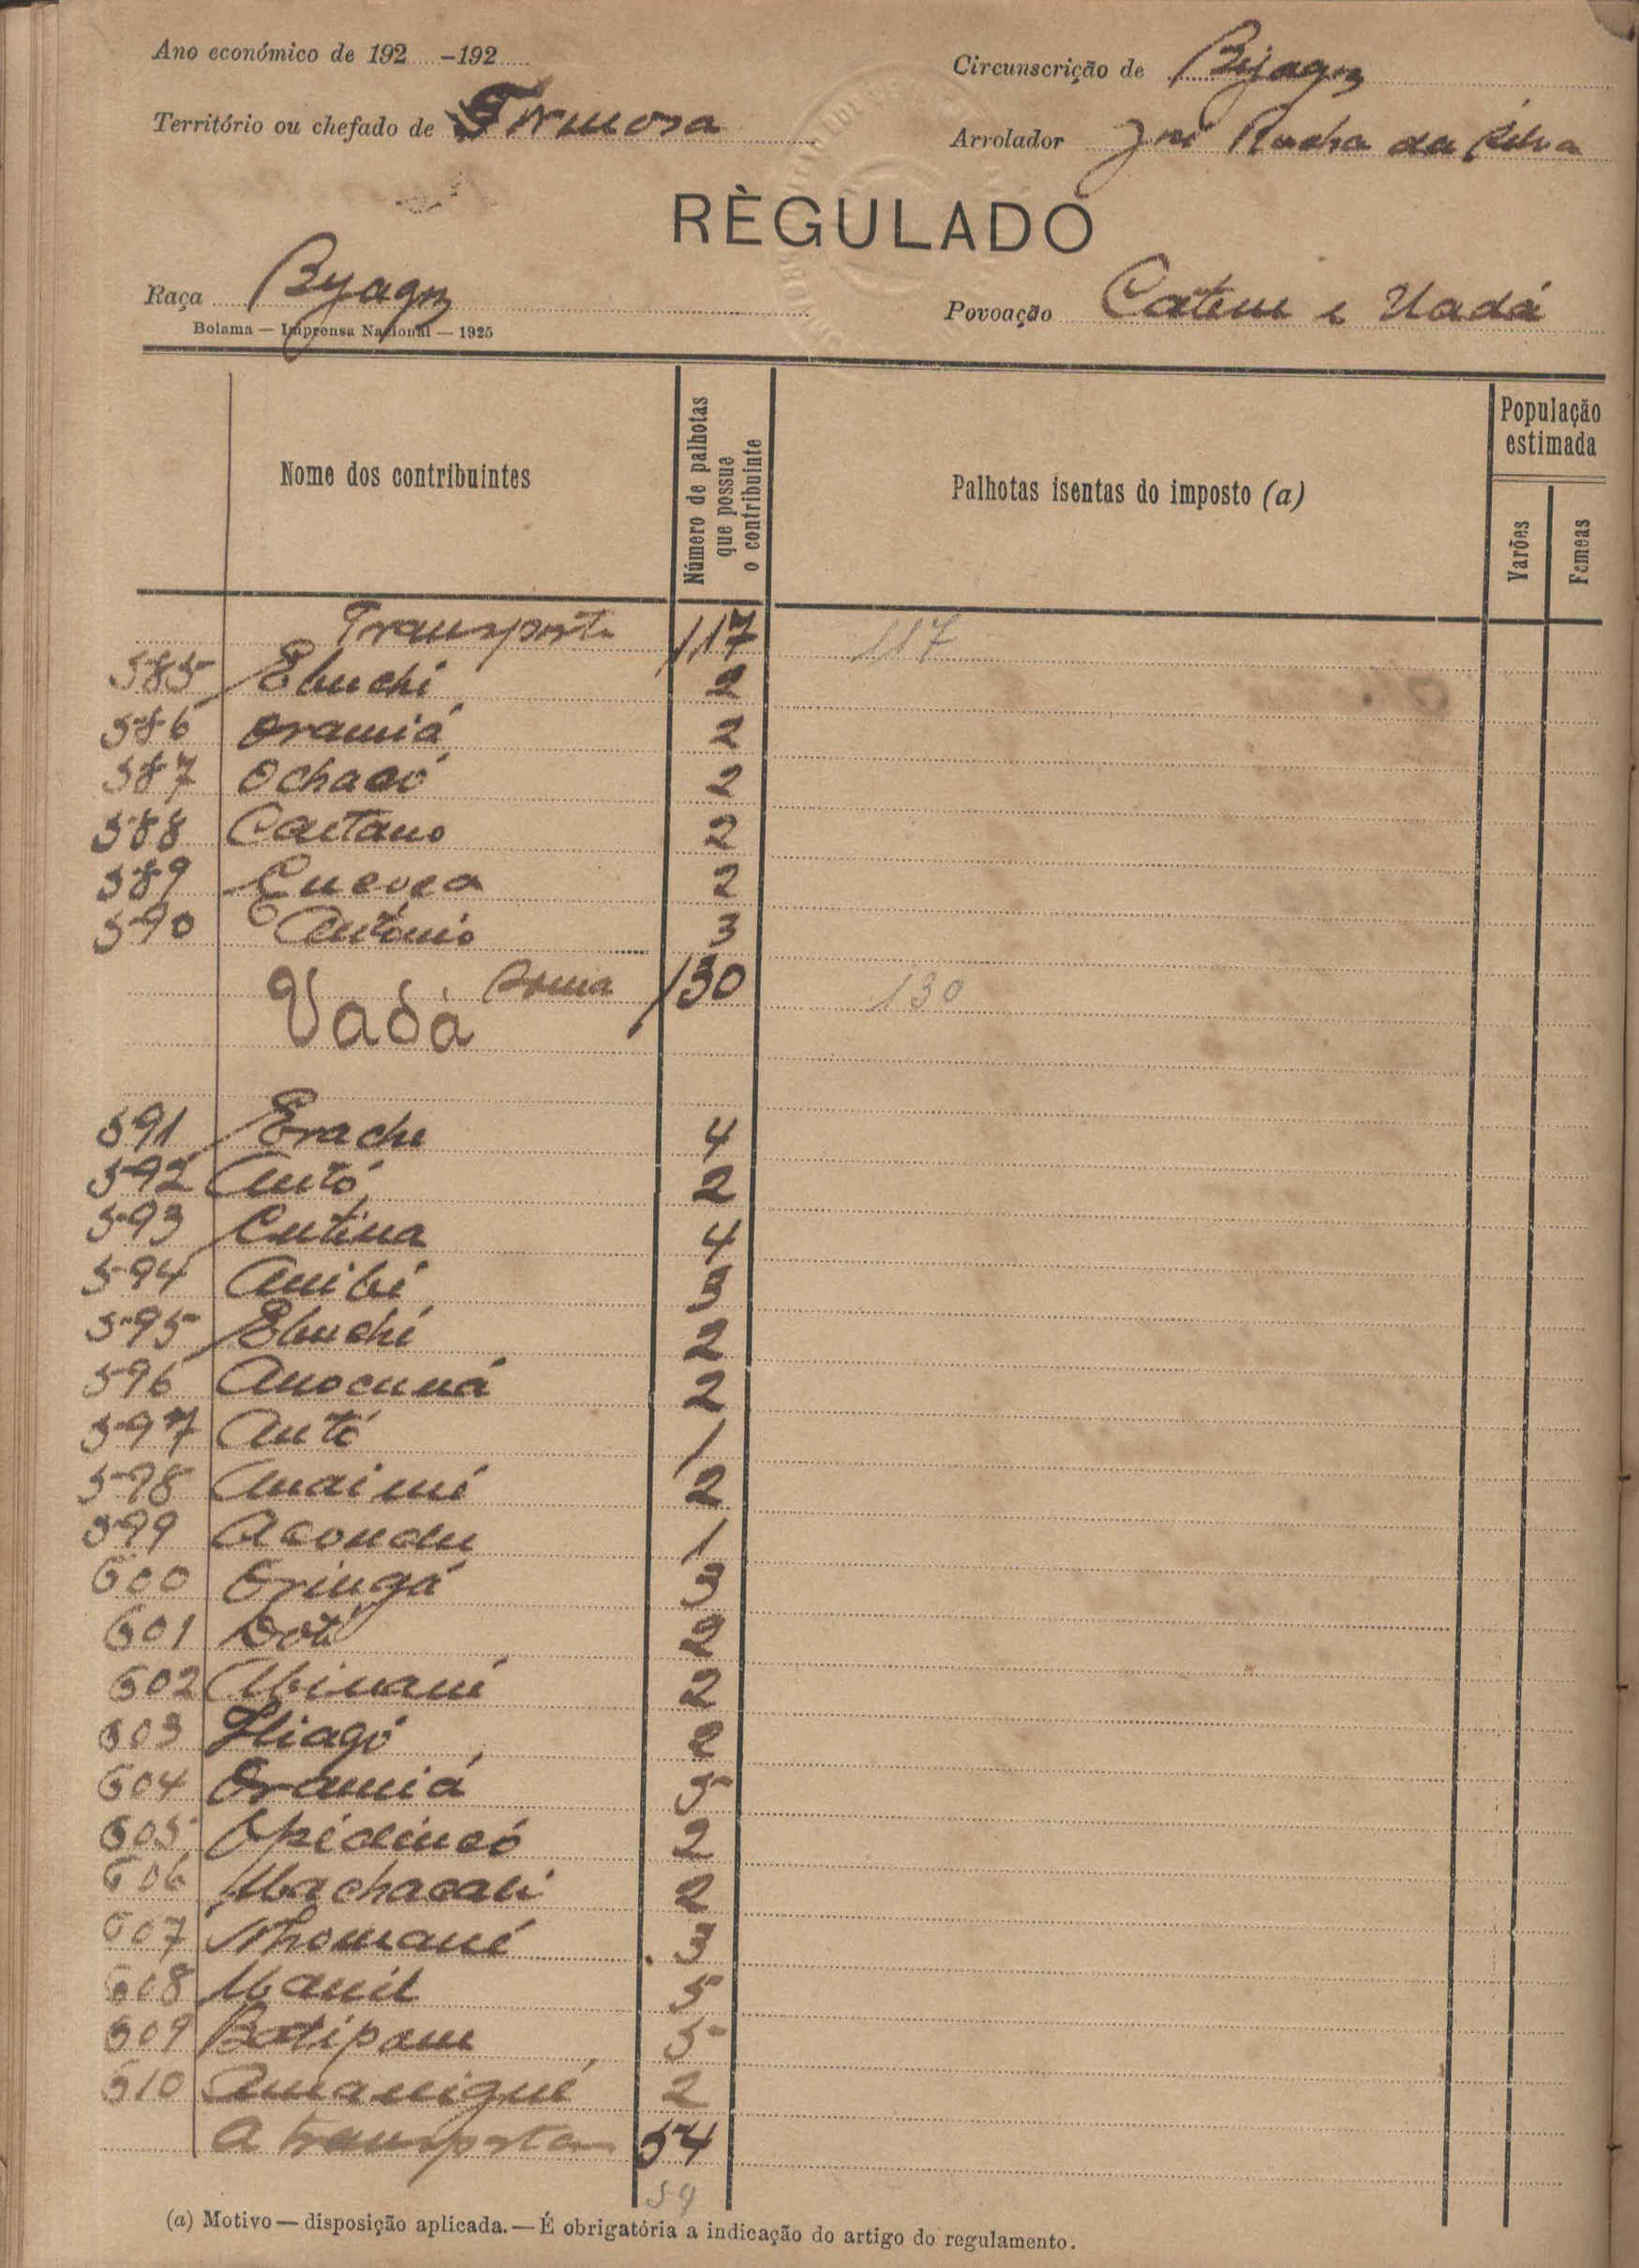 Ano económico de 192.....-192.....
Circunscrição de Bijagoz
Território ou chefado de Formosa
Arrolador José Rocha da Silva
RÈGULADO
Raça Byagoz
Povoação Cateu e Uadá
Bolama — Imprensa Nacional — 1925
Nome dos contribuintes
Número de palhotas que possue o contribuinte
Palhotas isentas do imposto (a)
População estimada
Varões
Femeas
Transporte 117 117
585 Ebuchi 2
586 Oramiá 2
587 Ochacó 2
588 Caetano 2
589 2
590 António 3
Soma 130 130
Vadá
591 Erache 4
592 Antó 2
593 Cutina 4
594 Anibi 3
595 Ebuchi 2
596 Anocuná 2
597 Antó 1
598 2
599 Acondu 1
600 Oringá 3
601 2
602 2
603 2
604 Oramiá 5
605 2
606 Machacali 2
607 Nhomané 3
608 Manil 5
609 Botipam 5
610 Amanigué 2
A transportar 54
59
(a) Motivo — disposição aplicada. — É obrigatória a indicação do artigo do regulamento.